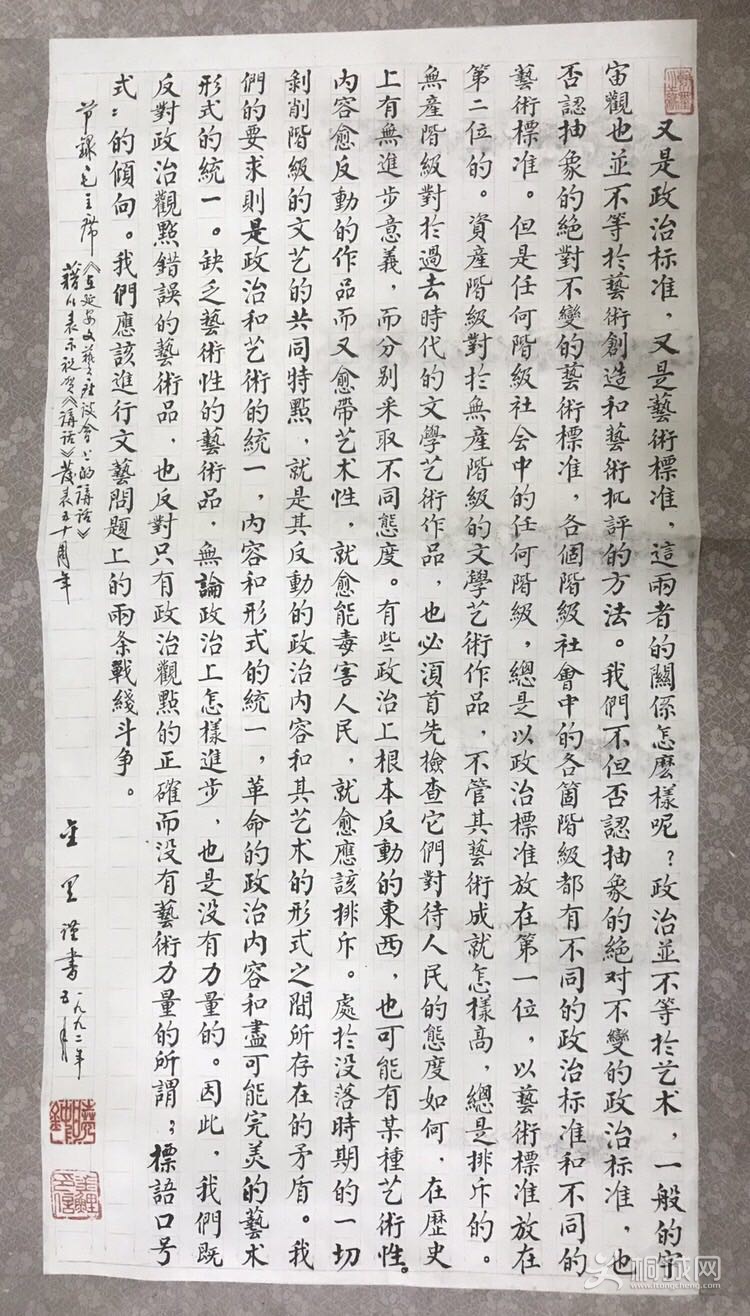 又是政治标准，又是藝術標准，這兩者的關係怎麽樣呢？政治並不等於艺术，一般的宇
宙觀也並不等於藝術創造和藝術批評的方法。我們不但否認抽象的絶对不變的政治标准，也
否認抽象的絕對不變的藝術標准，各個階級社會中的各箇階級都有不同的政治标准和不同的
藝術標准。但是任何階級社会中的任何階級，總是以政治標准放在第一位，以藝術標准放在
第二位的。資産階級對於無產階級的文學艺術作品，不管其藝術成就怎樣高，總是排斥的。
無產階級對於過去時代的文學艺術作品，也必須首先檢查它們對待人民的態度如何，在歷史
上有無進步意義，而分别采取不同態度。有些政治上根本反動的東西，也可能有某種艺術性。
内容愈反動的作品而又愈帶艺术性，就愈能毒害人民，就愈應該排斥。處於没落時期的一切
剥削階級的文艺的共同特點，就是其反動的政治内容和其艺术的形式之間所存在的矛盾。我
們的要求則是政治和艺術的統一，内容和形式的統一，革命的政治内容和盡可能完美的藝术
形式的統一。缺乏藝術性的藝術品，無論政治上怎樣進步，也是没有力量的。因此，我們既
反對政治觀點錯誤的藝術品，也反對只有政治觀點的正確而没有藝術力量的所謂：標語口号
式：的傾向。我們應該進行文藝問題上的兩条戰綫斗争。
节録毛主席《在延安文藝座談會上的講話》
藉以表示祝贺《講话》發表五十周年
謹書
一九九二年
五月
桐城网
itongcheng.com